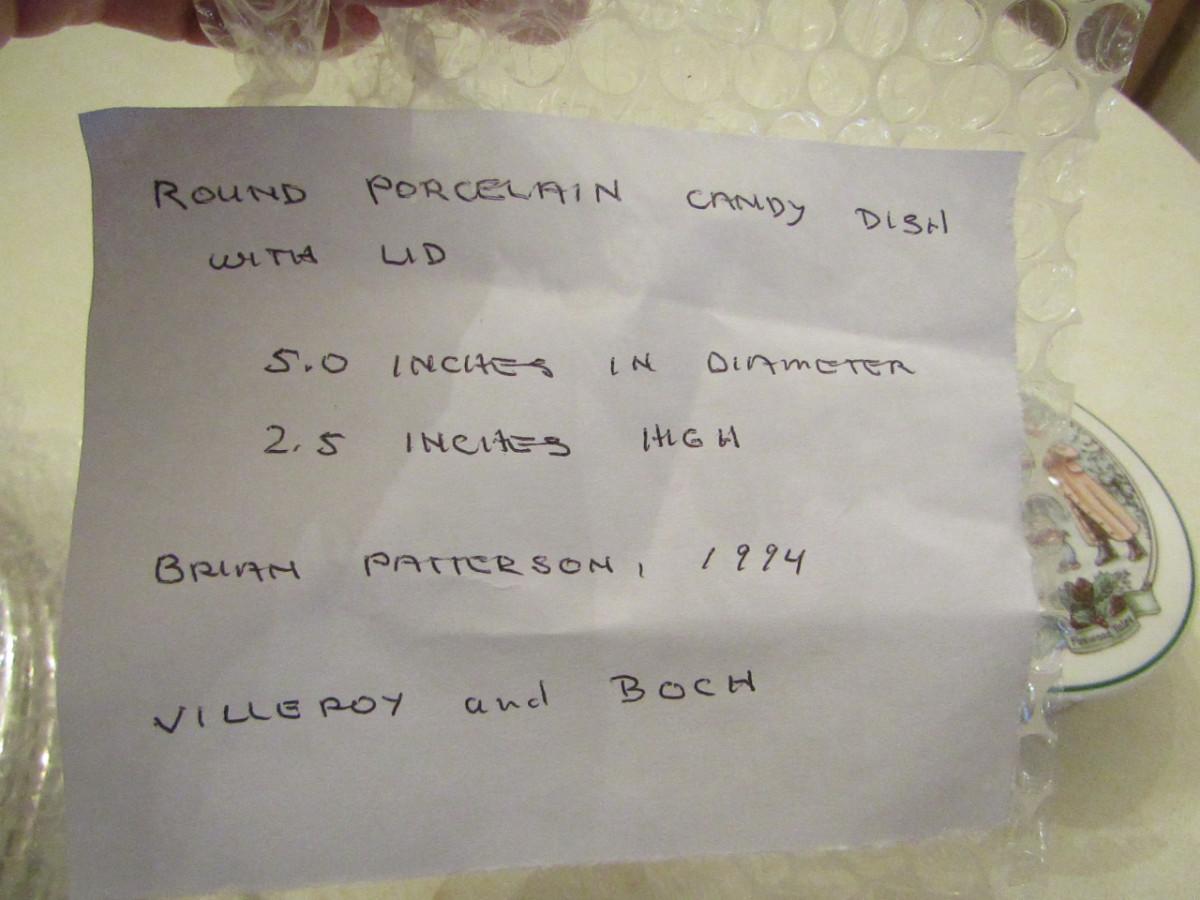 ROUND PORCELAIN CANDY DISH
WITH LID
5.0 INCHES IN DIAMETER
2.5 INCHES HIGH
BRIAN PATTERSON, 1994
VILLEROY and BOCH
Foxwood Tales